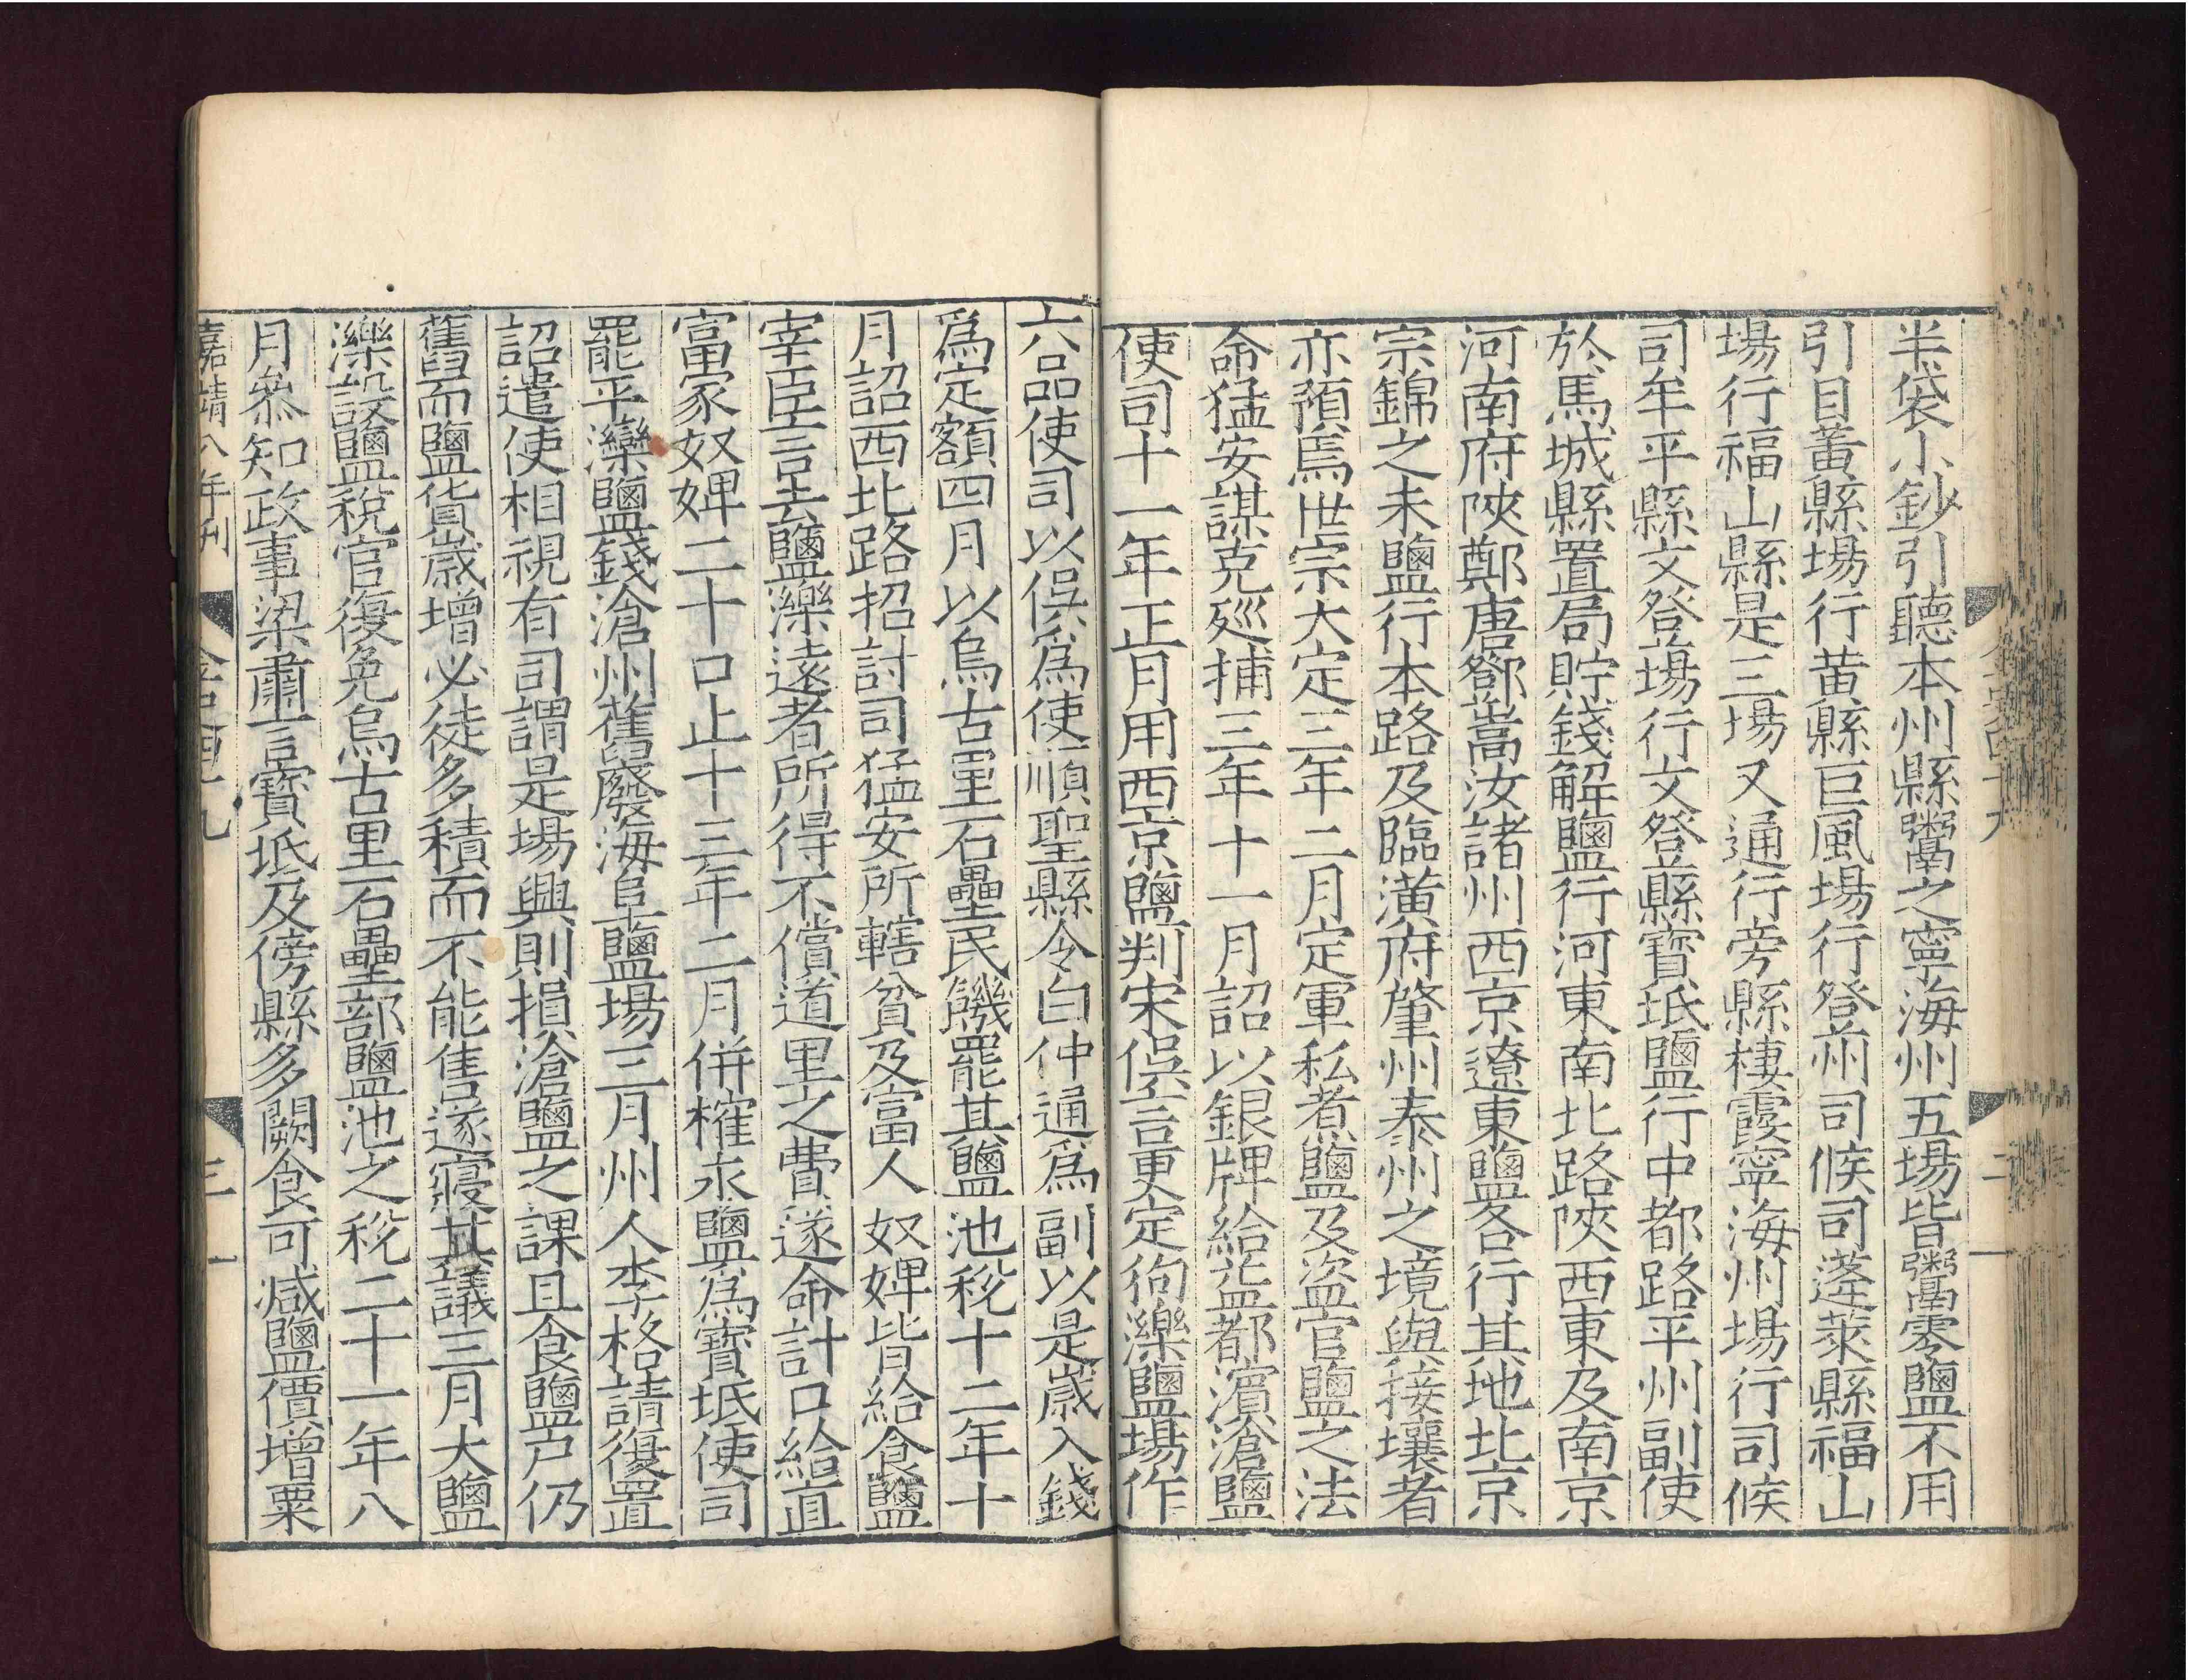 半袋小鈔引聽本州縣鬻之寧海州五場皆鬻零鹽不用
引目黃縣場行黃縣巨風場行登州司候司蓬萊縣福山
場行福山縣是三場又通行旁縣棲霞寧海州場行司候
司牟平縣文登場行文登縣寶坻鹽行中都路平州副使
於馬城縣置局貯錢解鹽行河東南北路陝西東及南京
河南府陝鄭唐鄧嵩汝諸州西京遼東鹽各行其地北京
宗錦之末鹽行本路及臨潢府肇州泰州之境與接壤者
亦預焉世宗大定三年二月定軍私煮鹽及盜官鹽之法
命猛安謀克廵捕三年十一月詔以銀牌給益都濵滄鹽
使司十一年正月用西京鹽判宋俁言更定狗濼鹽場作
六品使司以俁爲使順聖縣令白仲通爲副以是歲入錢
爲定額四月以烏古里石壘民饑罷其鹽池稅十二年十
月詔西北路招討司猛安所轄貧及富人奴婢皆給食鹽
宰臣言去鹽濼遠者所得不償道里之費遂命計口給直
富家奴婢二十口止十三年二月併榷永鹽爲寶坻使司
罷平灤鹽錢滄州舊廢海阜鹽場三月州人李格請復置
詔遣使相視有司謂是場興則損滄鹽之課且食鹽戸仍
舊而鹽貨歲增必徒多積而不能售遂寢其議三月大鹽
濼設鹽稅官復免烏古里石壘部鹽池之稅二十一年八
月叅知政事梁肅言寶坻及傍縣多闕食可減鹽價增粟
嘉靖八年刋
三